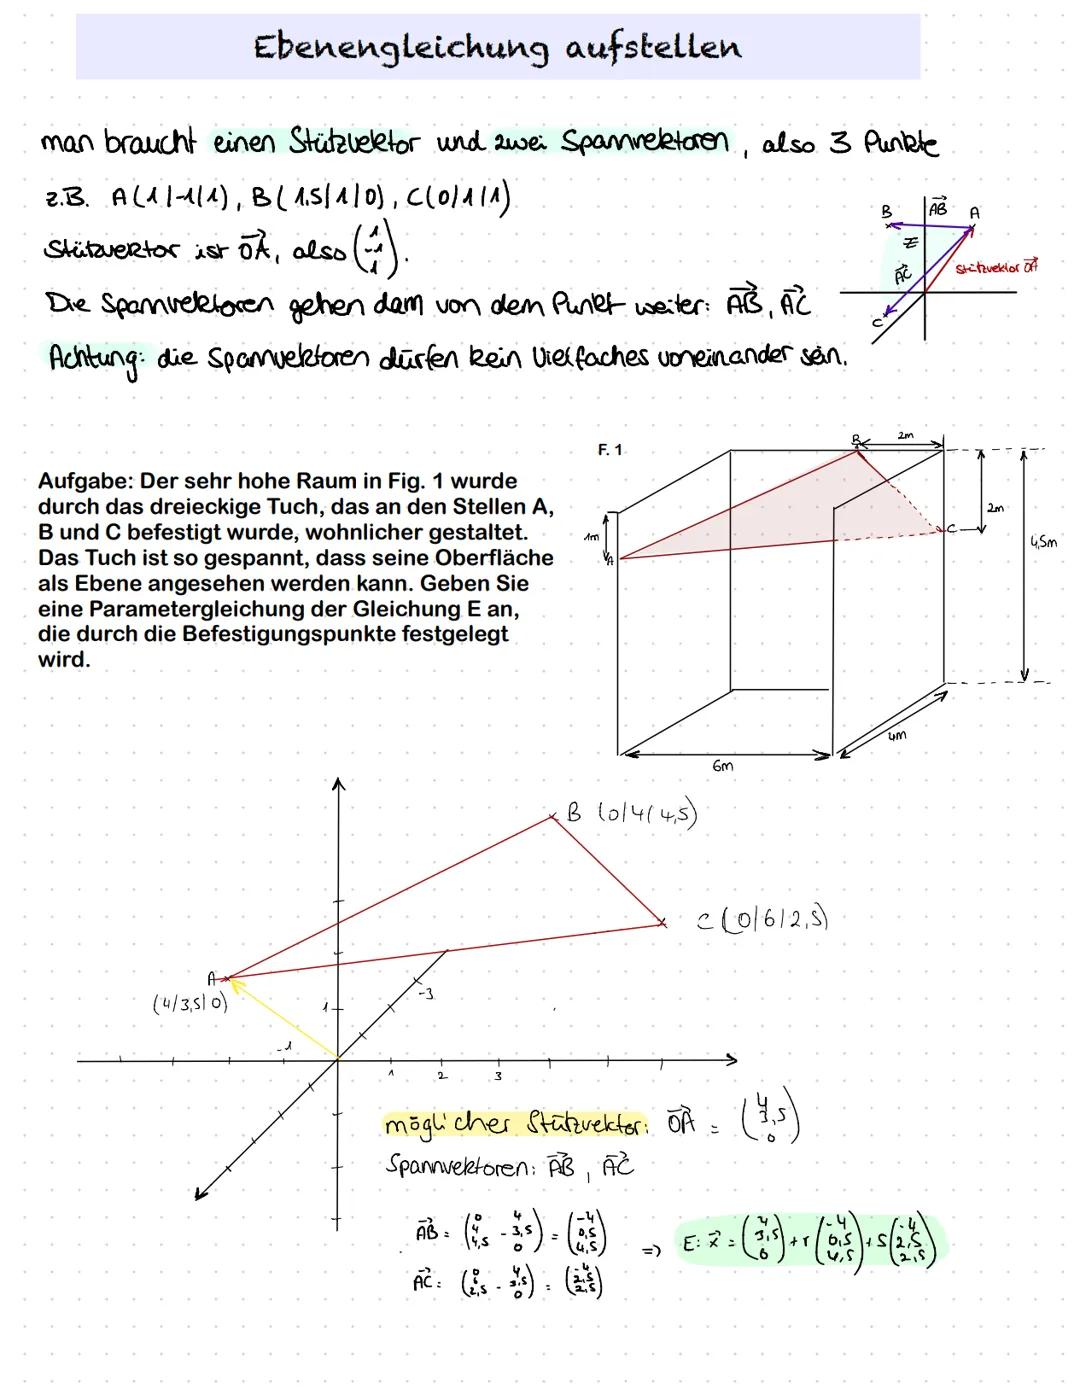 Ebenengleichung aufstellen
man braucht einen Stützvektor und zwei Spannvektoren, also 3 Punkte
z.B. A(1|-1|1), B(1,5|1|0), C(0|1|1)
Stützvektor ist OA, also (1 -1 1).
Die Spannvektoren gehen dann von dem Punkt weiter: AB, AC
Achtung: die Spannvektoren dürfen kein Vielfaches voneinander sein.
B AB A
E
AC Stützvektor OA
C
Aufgabe: Der sehr hohe Raum in Fig. 1 wurde
durch das dreieckige Tuch, das an den Stellen A,
B und C befestigt wurde, wohnlicher gestaltet.
Das Tuch ist so gespannt, dass seine Oberfläche
als Ebene angesehen werden kann. Geben Sie
eine Parametergleichung der Gleichung E an,
die durch die Befestigungspunkte festgelegt
wird.
F. 1
B 2m
2m
1m
A
C
4,5m
4m
6m
B (0/4/4,5)
C (0/6/2,5)
A
(4/3,5|0)
-3
1
-1
1 2 3
möglicher Stützvektor: OA = (4 3,5 0)
Spannvektoren: AB, AC
AB = (0 4 4,5 - 4 3,5 0) = (-4 0,5 4,5)
=> E: x = (4 3,5 0) + r (-4 0,5 4,5) + s (-4 2,5 2,5)
AC = (0 6 2,5 - 4 3,5 0) = (-4 2,5 2,5)